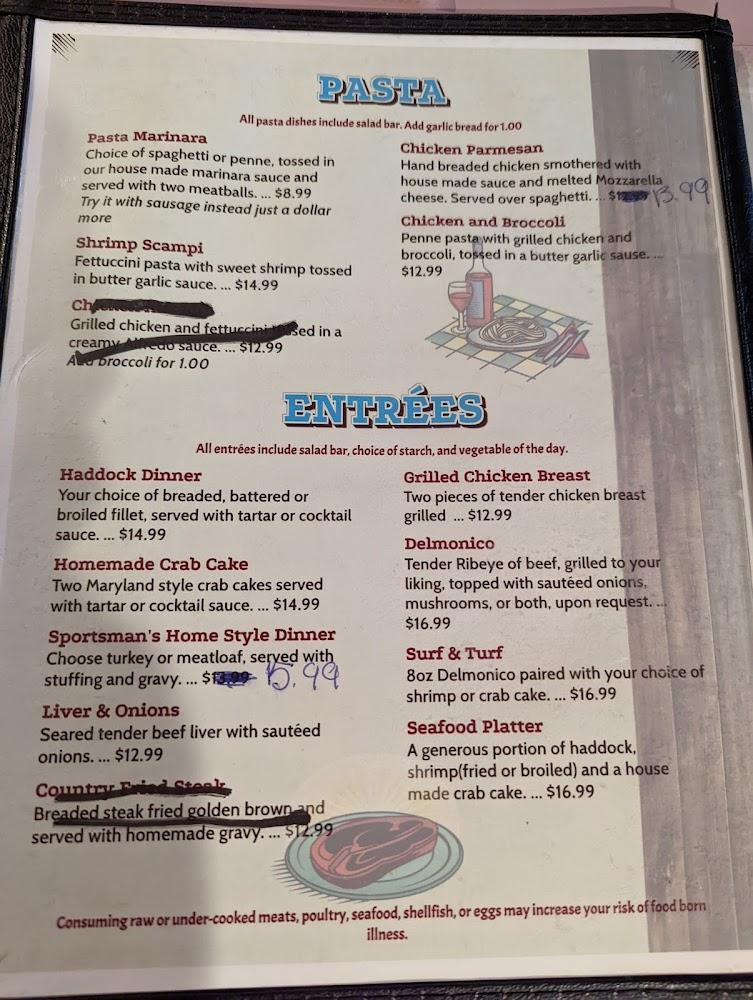 PASTA
All pasta dishes include salad bar. Add garlic bread for 1.00
Pasta Marinara
Choice of spaghetti or penne, tossed in
our house made marinara sauce and
served with two meatballs. ... $8.99
Try it with sausage instead just a dollar
more
Shrimp Scampi
Fettuccini pasta with sweet shrimp tossed
in butter garlic sauce. ... $14.99
Grilled chicken and fettuccini tossed in a
creamy Alfredo sauce. ... $12.99
Add broccoli for 1.00
Chicken Parmesan
Hand breaded chicken smothered with
house made sauce and melted Mozzarella
cheese. Served over spaghetti. ... 13.99
Chicken and Broccoli
Penne pasta with grilled chicken and
broccoli, tossed in a butter garlic sause. ...
$12.99
ENTRÉES
All entrées include salad bar, choice of starch, and vegetable of the day.
Haddock Dinner
Your choice of breaded, battered or
broiled fillet, served with tartar or cocktail
sauce. ... $14.99
Homemade Crab Cake
Two Maryland style crab cakes served
with tartar or cocktail sauce. ... $14.99
Sportsman's Home Style Dinner
Choose turkey or meatloaf, served with
stuffing and gravy. ... $13.99 15.99
Liver & Onions
Seared tender beef liver with sautéed
onions. ... $12.99
Country Fried Steak
Breaded steak fried golden brown and
served with homemade gravy. ... $12.99
Grilled Chicken Breast
Two pieces of tender chicken breast
grilled ... $12.99
Delmonico
Tender Ribeye of beef, grilled to your
liking, topped with sautéed onions,
mushrooms, or both, upon request. ...
$16.99
Surf & Turf
8oz Delmonico paired with your choice of
shrimp or crab cake. ... $16.99
Seafood Platter
A generous portion of haddock,
shrimp(fried or broiled) and a house
made crab cake. ... $16.99
Consuming raw or under-cooked meats, poultry, seafood, shellfish, or eggs may increase your risk of food born
illness.